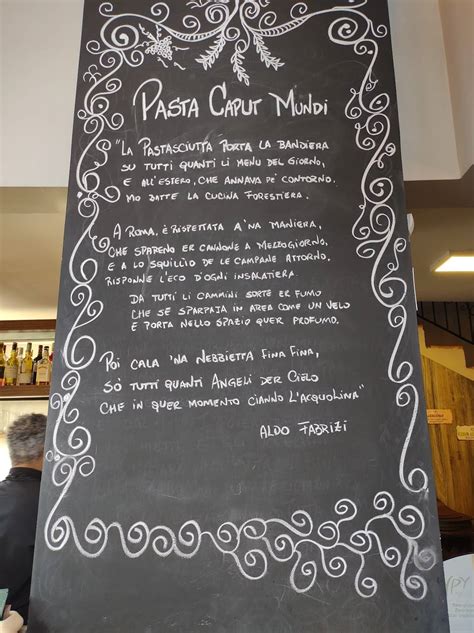 PASTA CAPUT MUNDI
"LA PASTASCIUTTA PORTA LA BANDIERA
SU TUTTI QUANTI LI MENU DEL GIORNO,
E ALL'ESTERO, CHE ANNAVA PE' CONTORNO.
MO BATTE LA CUCINA FORESTIERA.
A ROMA, È RISPETTATA A'NA MANIERA,
CHE SPARENO ER CANNONE A MEZZOGIORNO,
E A LO SQUILLO DE LE CAMPANE ATTORNO,
RISPONNE L'ECO D'OGNI INSALATIERA.
DA TUTTI LI CAMMINI SORTE ER FUMO
CHE SE SPARPAJA IN AREA COME UN VELO
E PORTA NELLO SPAZIO QUER PROFUMO.
POI CALA 'NA NEBBIETTA FINA FINA,
SÒ TUTTI QUANTI ANGELI DER CIELO
CHE IN QUER MOMENTO CIANNO L'ACQUOLINA"
ALDO FABRIZI